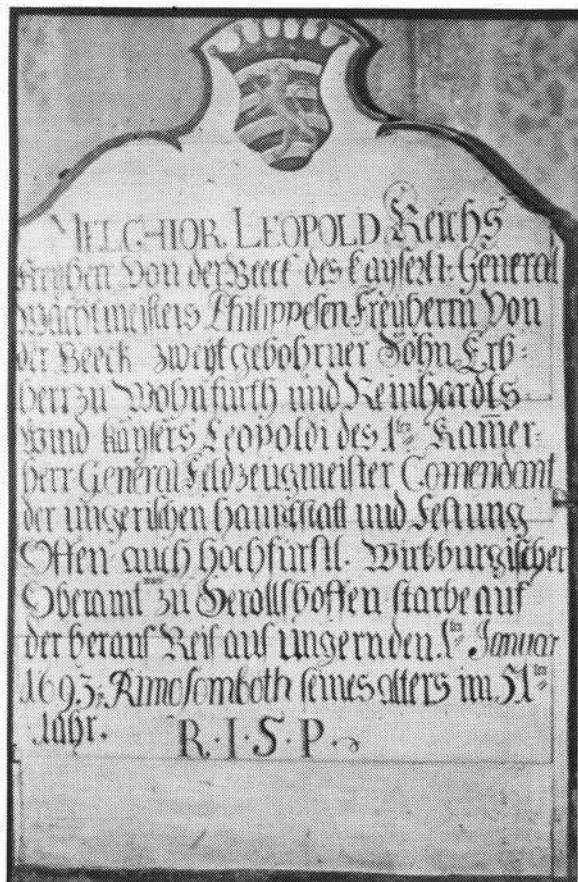 MELCHIOR LEOPOLD Reichs
Freyherr Von der Beeck des Kayserli: General
Wachtmeisters Philippesen Freyherrn Von
der Beeck zweyt gebohrner Sohn Erb-
herr zu Wohnfurth und Reinhardts
wind Kaysers Leopoldi des 1ten Kam̅er-
herr General Feldzeugmeister Comendant
der ungerischen haupstatt und Festung
Offen auch hochfürstl. Wirtzburgischer
Oberamtman zu Gerollshoffen starbe auf
der herauf Reis aus ungern den 1ten Januar
1693 seines alters im 51ten
Jahr. R. I. S. P.